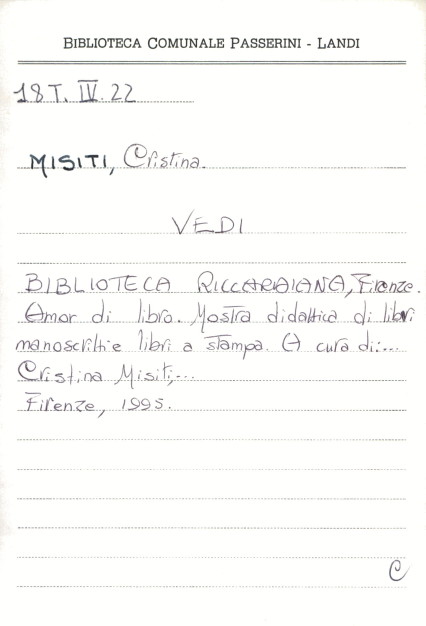 BIBLIOTECA COMUNALE PASSERINI - LANDI
18 T. IV. 22
MISITI, Cristina.
VEDI
BIBLIOTECA RICCARDIANA, Firenze.
Amor di libro. Mostra didattica di libri
manoscritti e libri a stampa. A cura di:...
Cristina Misiti,...
Firenze, 1995.
C